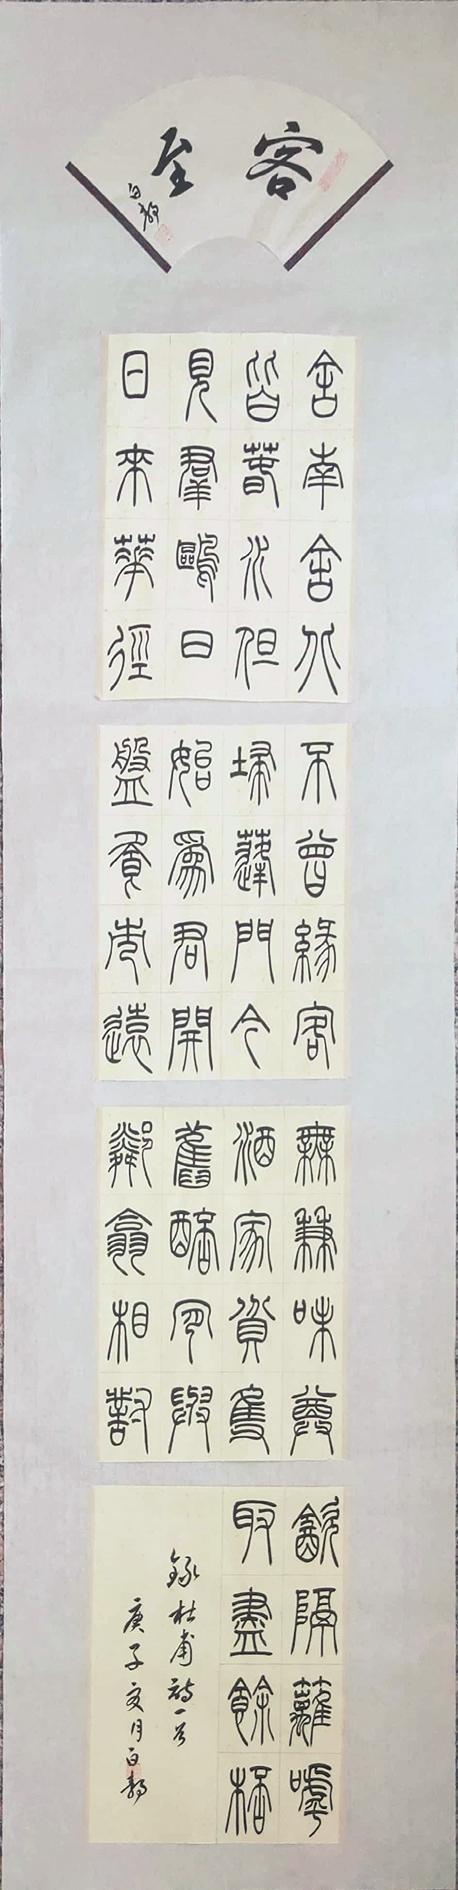 客至
舍南舍北
皆春水但
見羣鷗日
日來華徑
不曾緣客
埽蓬門今
始爲君開
盤飧市遠
無兼味尊
酒家貧隻
舊醅肎與
鄰翁相對
飲隔籬呼
取盡餘桮
錄杜甫詩一首
庚子冬月